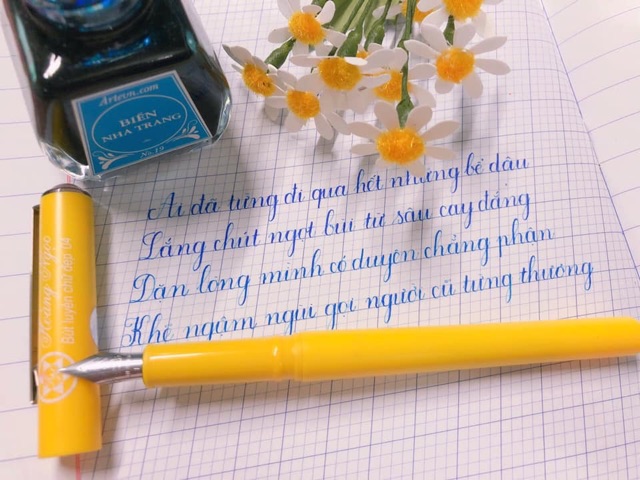 Arteon.com
BIỂN
NHA TRANG
No.19
Ai đã từng đi qua hết những bể dâu
Lắng chút ngọt bùi từ sâu cay đắng
Dặn lòng mình có duyên chẳng phận
Khẽ ngậm ngùi gọi người cũ từng thương
Hoàng Ngọc
Bút luyện chữ đẹp 04